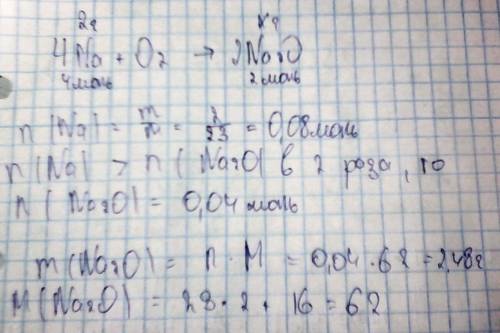 2г xг
4Na + O2 → 2Na2O
4моль 2моль
n(Na) = m/M = 2/23 = 0,08моль
n(Na) > n(Na2O) в 2 раза, то
n(Na2O) = 0,04 моль
m(Na2O) = n · M = 0,04 · 62 = 2,48г
M(Na2O) = 23 · 2 + 16 = 62